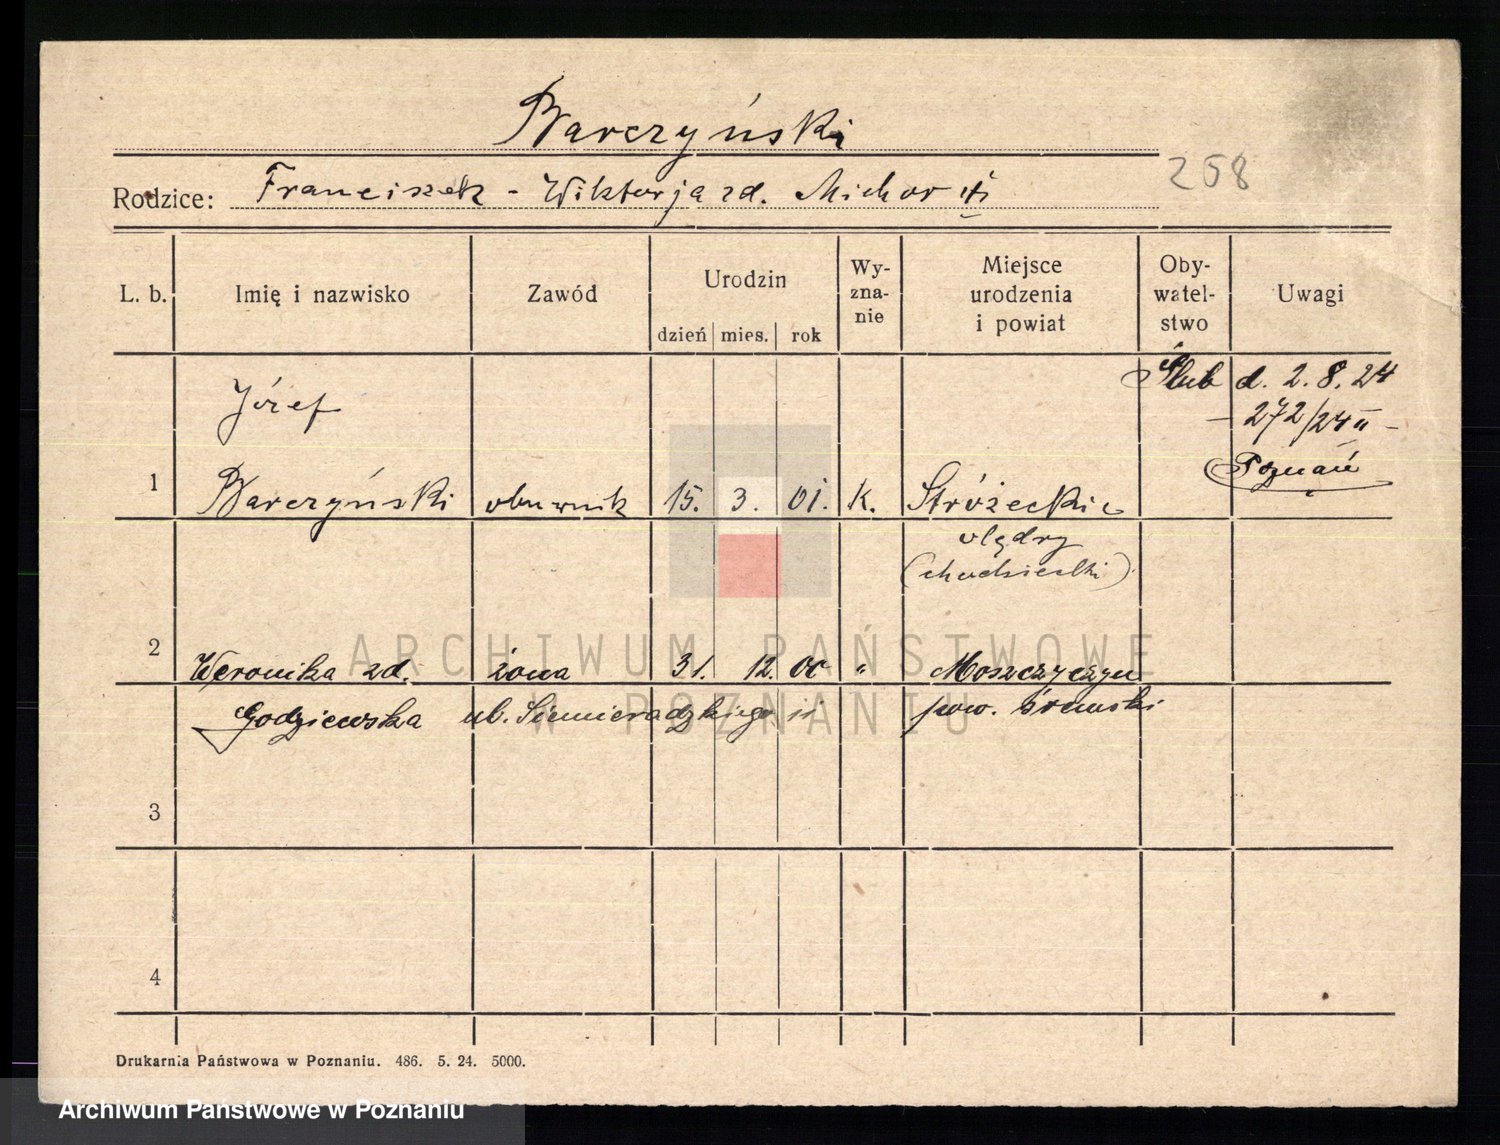 Warczyński
258
Rodzice: Franciszek - Wiktorja zd.
L. b. Imię i nazwisko Zawód Urodzin dzień mies. rok Wy-zna-nie Miejsce urodzenia i powiat Oby-watel-stwo Uwagi
Ślub d. 2. 8. 24
- 272/24 II -
Poznań
Józef
1 Warczyński obuwnik 15. 3. 01. k. Stróżeckie
olędry
(chodzieski)
2 Weronika zd. żona 31. 12. 00 "
Godziewska ul. Siemieradzkiego 11 pow. śremski
3
4
Drukarnia Państwowa w Poznaniu. 486. 5. 24. 5000.
ARCHIWUM PAŃSTWOWE
W POZNANIU
Archiwum Państwowe w Poznaniu